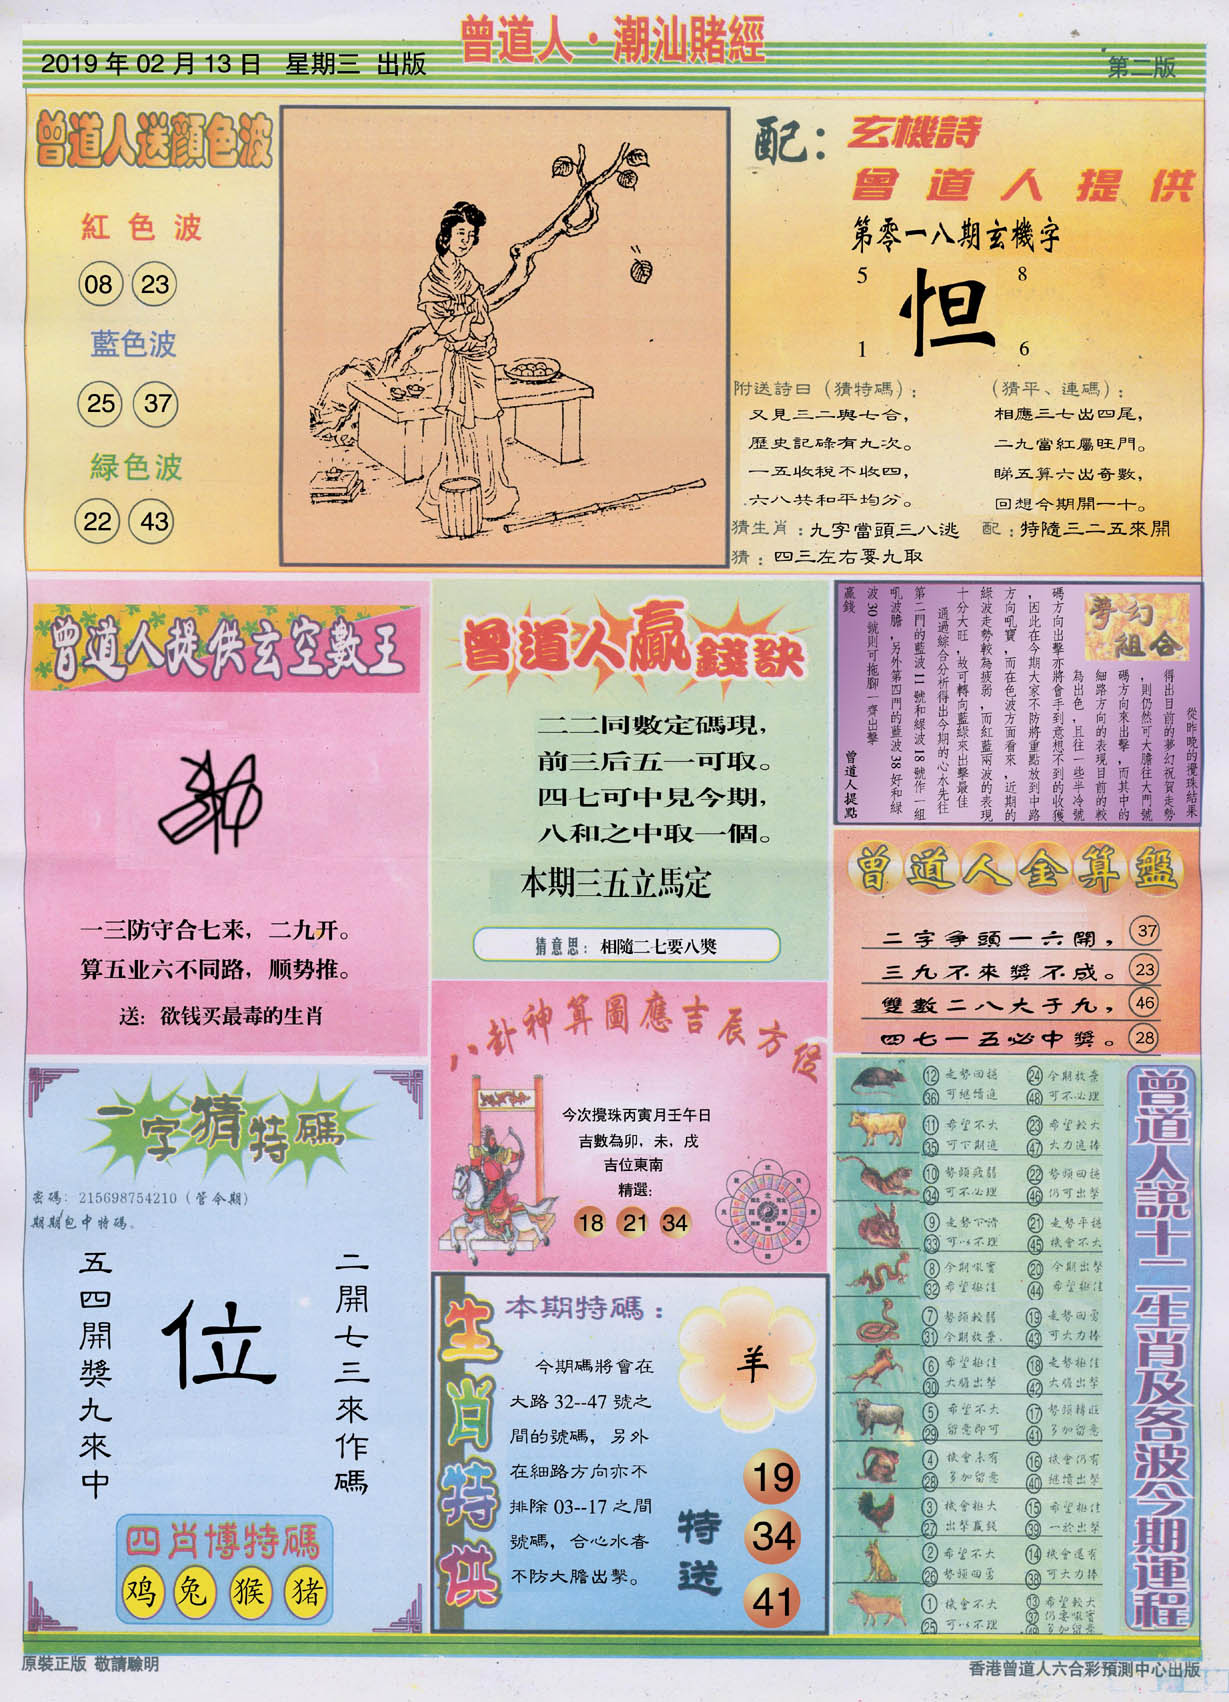 曾道人·潮汕賭經
2019年02月13日 星期三 出版
第二版
曾道人送顏色波
紅色波
08 23
藍色波
25 37
緑色波
22 43
配：玄機詩
曾道人提供
第零一八期玄機字
5 8
怛
1 6
附送詩曰（猜特碼）：
又見三二與七合，
歷史記碌有九次。
一五收稅不收四，
六八共和平均分。
（猜平、連碼）：
相應三七出四尾，
二九當紅屬旺門。
睇五算六出奇數，
回想今期開一十。
猜生肖：九字當頭三八逃 配：特隨三二五來開
猜：四三左右要九取
曾道人提供玄空數王
一三防守合七来，二九开。
算五业六不同路，顺势推。
送：欲钱买最毒的生肖
曾道人贏錢訣
二二同數定碼現，
前三后五一可取。
四七可中見今期，
八和之中取一個。
本期三五立馬定
猜意思：相隨二七要八獎
夢幻組合
從昨晚的攪珠結果
得出目前的夢幻祝賀走勢
，則仍然可大膽往大門號
碼方向來出擊，而其中的
細路方向的表現目前的較
為出色，且往一些半冷號
碼方向出擊亦將會手到意想不到的收獲
，因此在今期大家不防將重點放到中路
方向吼寶，而在色波方面看來，近期的
綠波走勢較為疲弱，而紅藍兩波的表現
十分大旺，故可轉向藍綠來出擊最佳
通過綜合分析得出今期的心水先往
第二門的藍波11號和綠波18號作一組
吼波膽，另外第四門的藍波38好和綠
波30號則可拖腳一齊出擊
贏錢 曾道人提點
曾道人金算盤
二字爭頭一六開， 37
三九不來獎不成。 23
雙數二八大于九， 46
四七一五必中獎。 28
八卦神算圖應吉辰方位
今次攪珠丙寅月壬午日
吉數為卯，未，戌
吉位東南
精選:
18 21 34
一字猜特碼
密碼：215698754210（管令期）
期期包中特碼。
二開七三來作碼
位
五四開獎九來中
四肖博特碼
鸡 兔 猴 猪
生肖特供
本期特碼：
羊
今期碼將會在
大路32--47號之
間的號碼，另外
在細路方向亦不
排除03--17之間
號碼，合心水者
不防大膽出擊。
特送
19
34
41
曾道人説十二生肖及各波今期運程
12 走勢回穩 24 今期放棄
36 可繼續追 48 可不必理
11 希望不大 23 希望較大
35 可下期追 47 大力追捧
10 勢頭疲弱 22 勢頭回穩
34 可不必理 46 仍可出擊
9 走勢下滑 21 走勢平穩
33 可以不理 45 機會不大
8 今期吼寶 20 今期出擊
32 希望極佳 44 希望極佳
7 勢頭較弱 19 走勢回勇
31 今期放棄. 43 可大力捧
6 希望極佳 18 走勢極佳
30 大膽出擊 42 大膽出擊
5 希望不大 17 勢頭轉旺
29 留意即可 41 多加留意
4 機會未有 16 機會仍有
28 多加留意 40 継續出擊
3 機會極大 15 希望極佳
27 出擊贏錢 39 一於出擊
2 希望不大 14 機會還有
26 勢頭回勇 38 可大力捧
1 機會不大 13 希望較大
25 可以不理 37 仍要吼寶
49 多加留意
原裝正版 敬請驗明
香港曾道人六合彩預測中心出版